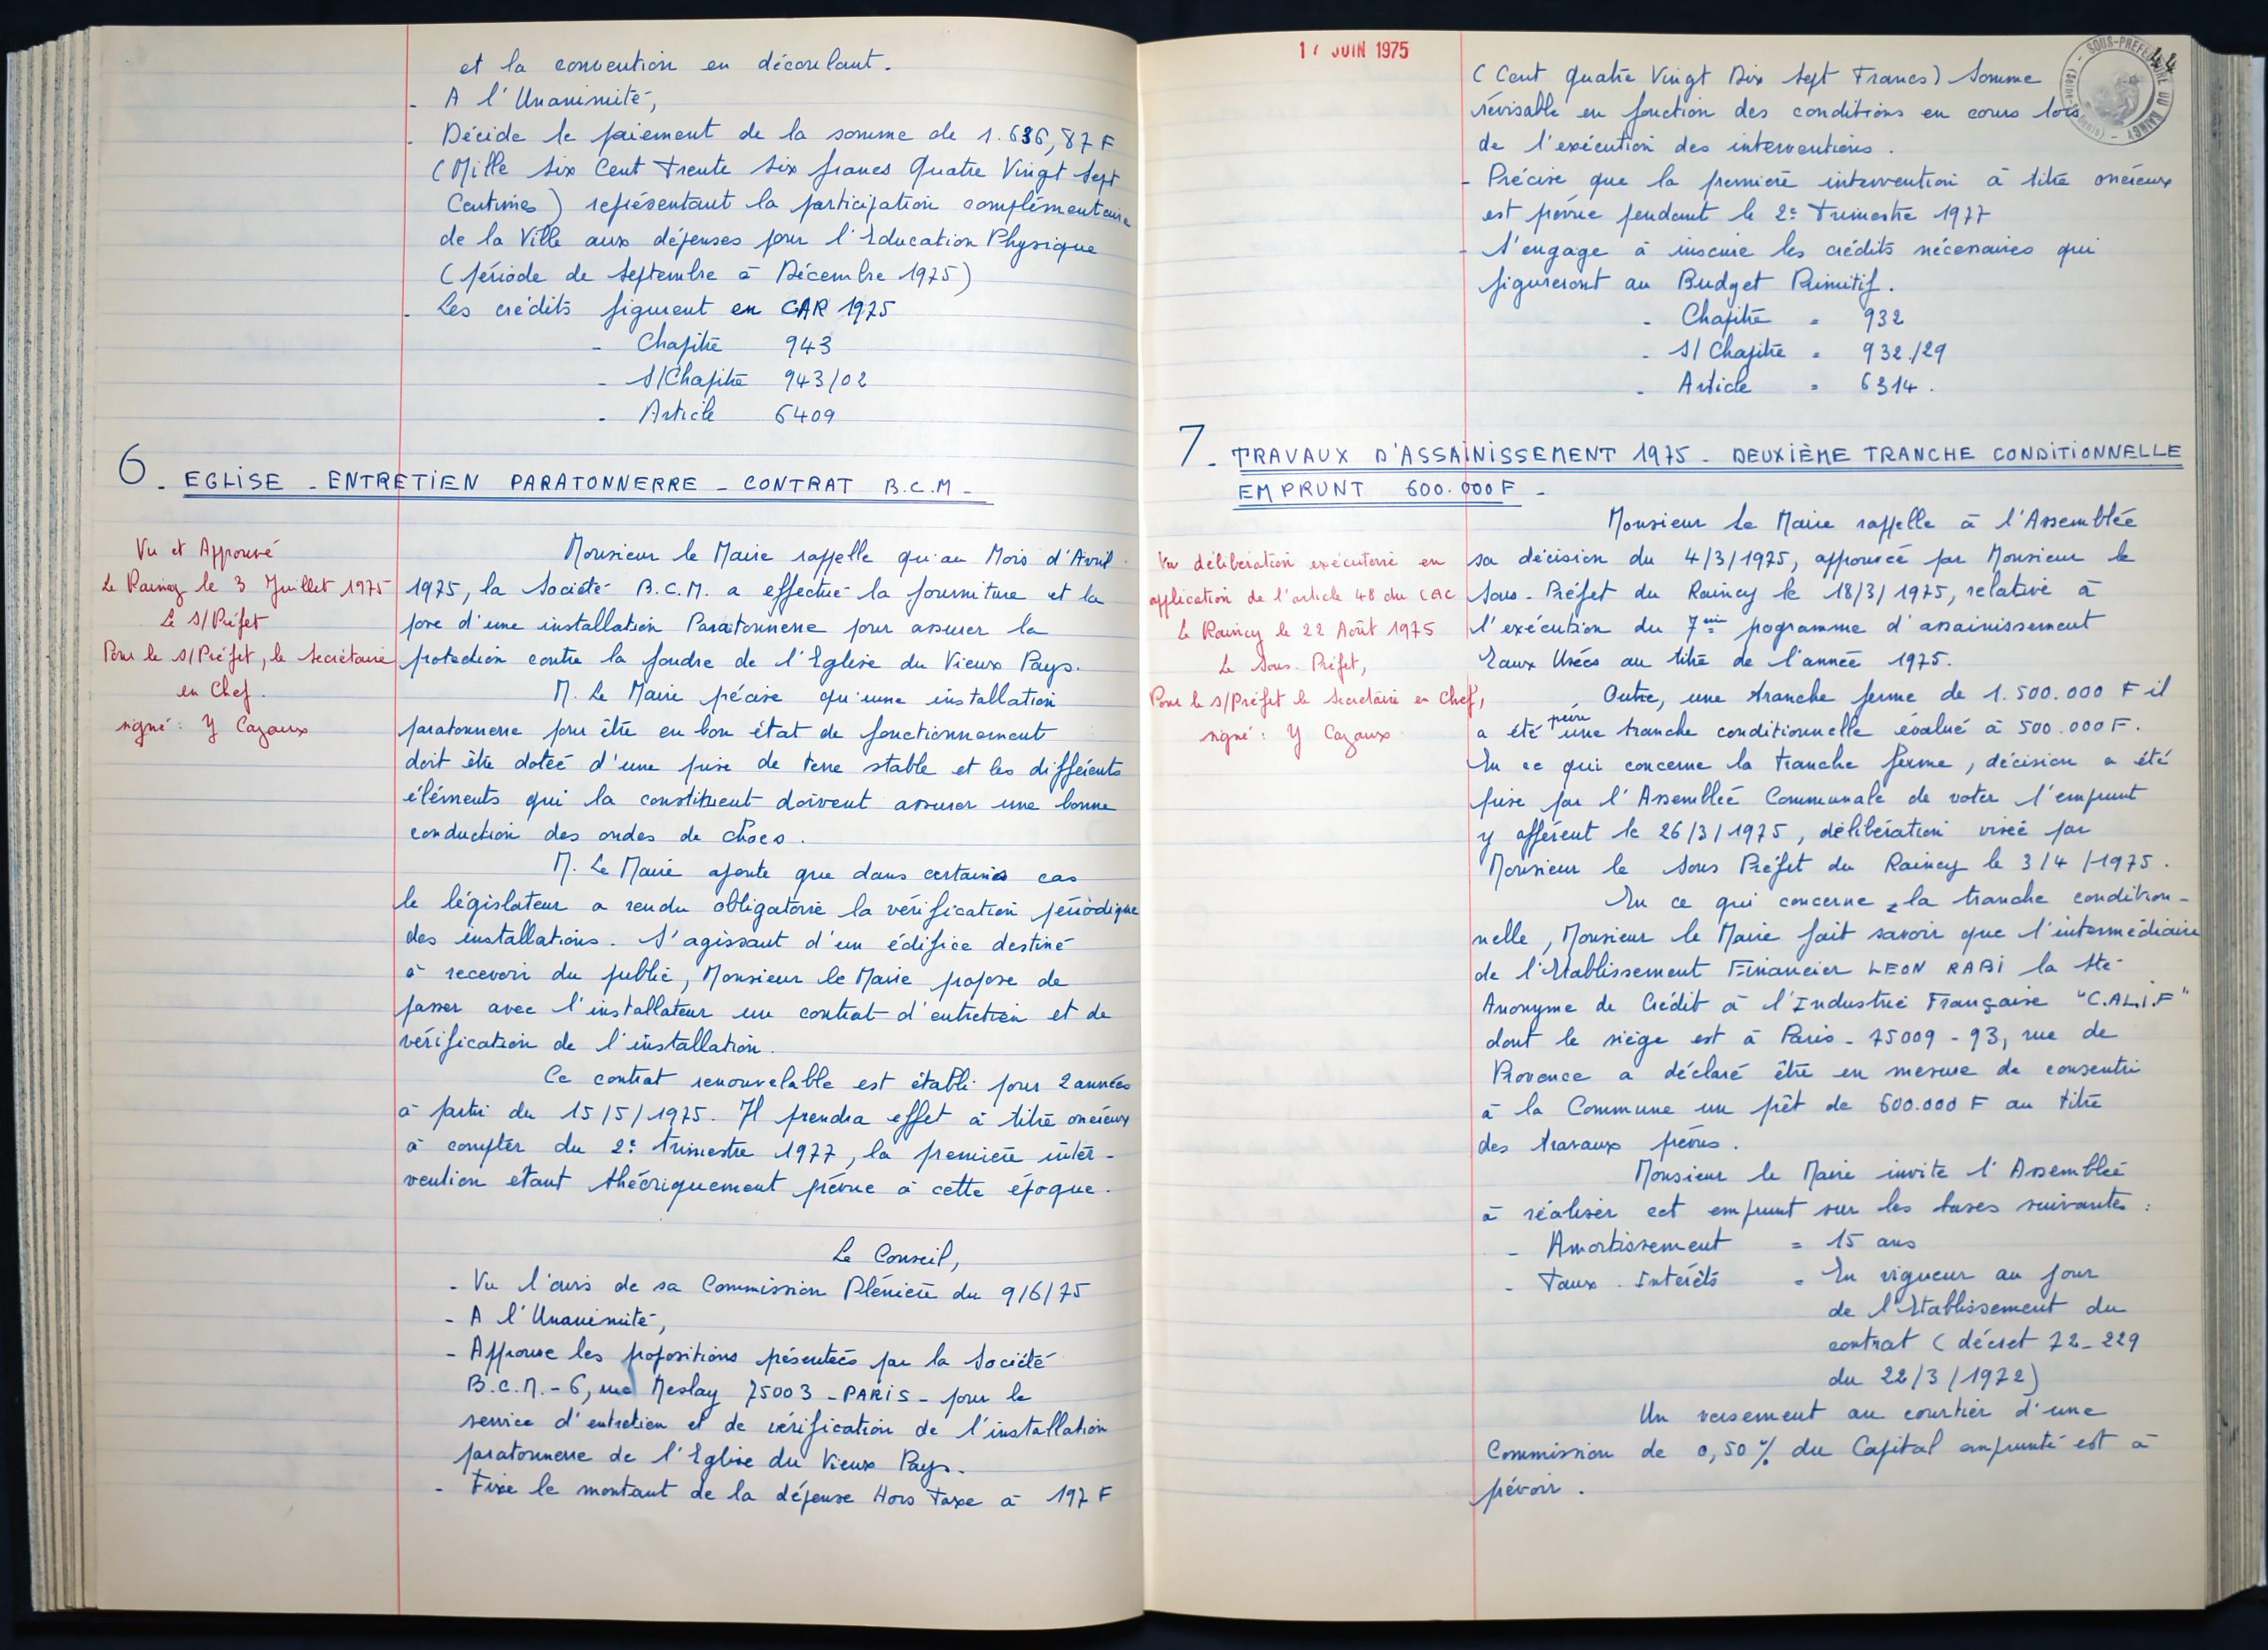 et la convention en découlant.
- A l'Unanimité,
- Décide le paiement de la somme de 1.636,87 F
(Mille Six Cent Trente Six francs Quatre Vingt Sept
Centimes) représentant la participation complémentaire
de la Ville aux dépenses pour l'Education Physique
(période de Septembre à Décembre 1975)
- Les crédits figurent en CAR 1975
- Chapitre 943
- S/Chapitre 943/02
- Article 6409
6. EGLISE - ENTRETIEN PARATONNERRE - CONTRAT B.C.M -
Vu et Approuvé
Le Raincy le 3 Juillet 1975
Le S/Préfet
Pour le S/Préfet, le Secrétaire
en Chef.
signé : Y Cazaux
Monsieur le Maire rappelle qu'au Mois d'Avril
1975, la Société B.C.M. a effectué la fourniture et la
pose d'une installation Paratonnerre pour assurer la
protection contre la foudre de l'Eglise du Vieux Pays.
M. Le Maire précise qu'une installation
paratonnerre pour être en bon état de fonctionnement
doit être dotée d'une prise de terre stable et les différents
éléments qui la constituent doivent assurer une bonne
conduction des ondes de chocs.
M. Le Maire ajoute que dans certains cas
le législateur a rendu obligatoire la vérification périodique
des installations. S'agissant d'un édifice destiné
à recevoir du public, Monsieur le Maire propose de
passer avec l'installateur un contrat d'entretien et de
vérification de l'installation.
Ce contrat renouvelable est établi pour 2 années
à partir du 15/5/1975. Il prendra effet à titre onéreux
à compter du 2e trimestre 1977, la première inter-
vention étant théoriquement prévue à cette époque.
Le Conseil,
- Vu l'avis de sa Commission Plénière du 9/6/75
- A l'Unanimité,
- Approuve les propositions présentées par la Société
B.C.M. - 6, rue Meslay 75003 - PARIS - pour le
service d'entretien et de vérification de l'installation
paratonnerre de l'Eglise du Vieux Pays.
- Fixe le montant de la dépense Hors Taxe à 197 F
17 JUIN 1975
SOUS-PREFECTURE DU RAINCY
44
(Cent Quatre Vingt Dix Sept Francs) Somme
révisable en fonction des conditions en cours lors
de l'exécution des interventions.
- Précise que la première intervention à titre onéreux
est prévue pendant le 2e Trimestre 1977
- S'engage à inscrire les crédits nécessaires qui
figureront au Budget Primitif.
- Chapitre = 932
- S/Chapitre = 932/29
- Article = 6314.
7. TRAVAUX D'ASSAINISSEMENT 1975 - DEUXIÈME TRANCHE CONDITIONNELLE
EMPRUNT 600.000 F -
Vu délibération exécutoire en
application de l'article 48 du CAC
Le Raincy le 22 Août 1975
Le Sous-Préfet,
Pour le S/Préfet le Secrétaire en Chef,
signé : Y Cazaux
Monsieur Le Maire rappelle à l'Assemblée
sa décision du 4/3/1975, approuvée par Monsieur le
Sous-Préfet du Raincy le 18/3/1975, relative à
l'exécution du 7ème pogramme d'assainissement
Eaux Usées au titre de l'année 1975.
Outre, une tranche ferme de 1.500.000 F il
a été prévu une tranche conditionnelle évalué à 500.000 F.
En ce qui concerne la tranche ferme, décision a été
prise par l'Assemblée Communale de voter l'emprunt
y afférent le 26/3/1975, délibération visée par
Monsieur le Sous Préfet du Raincy le 3/4/1975.
En ce qui concerne la tranche condition-
nelle, Monsieur le Maire fait savoir que l'intermédiaire
de l'Etablissement Financier LEON RABI la Sté
Anonyme de Crédit à l'Industrie Française "C.AL.I.F"
dont le siège est à Paris - 75009 - 93, rue de
Provence a déclaré être en mesure de consentir
à la Commune un prêt de 600.000 F au titre
des travaux prévus.
Monsieur le Maire invite l'Assemblée
à réaliser cet emprunt sur les bases suivantes :
- Amortissement = 15 ans
- Taux Intérêts = En vigueur au jour
de l'Etablissement du
contrat (décret 72-229
du 22/3/1972)
Un versement au courtier d'une
Commission de 0,50 % du Capital emprunté est à
prévoir.